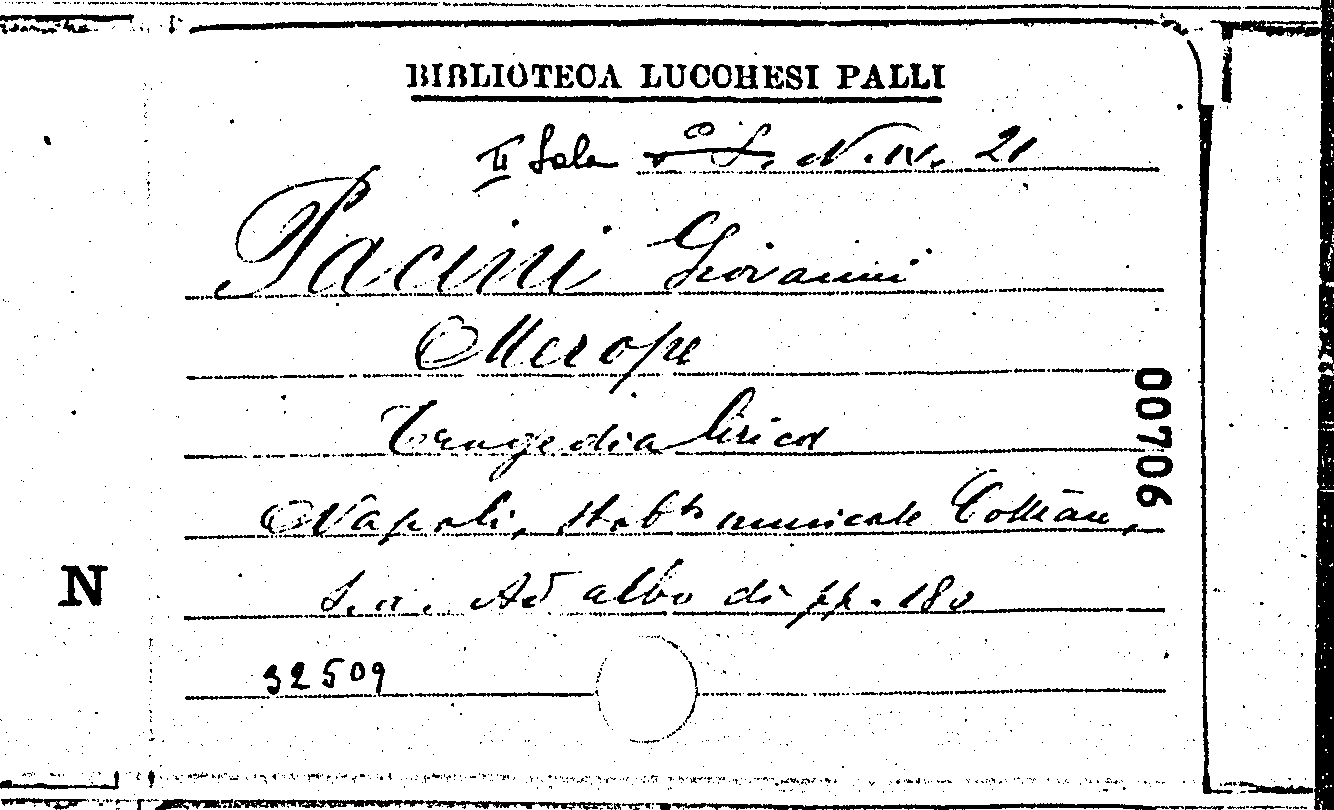 BIBLIOTECA LUCCHESI PALLI
II Sala N. IV. 21
Pacini Giovanni
Merope
Tragedia lirica
00706
Napoli, Stabto musicale Cottrau,
S. a. Ad albo di pp. 180
N
32509